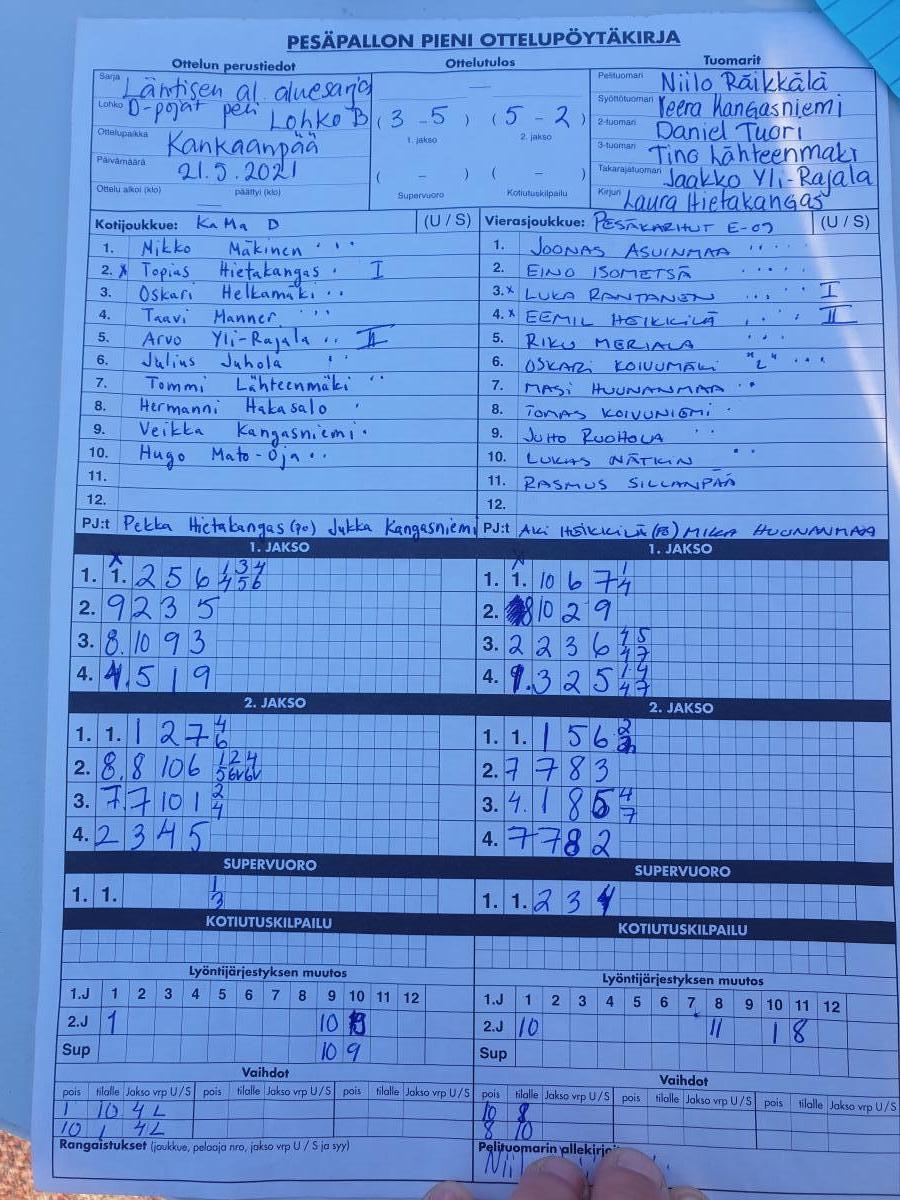 PESÄPALLON PIENI OTTELUPÖYTÄKIRJA
Ottelun perustiedot Ottelutulos Tuomarit
Sarja Läntisen al. aluesarja
Lohko D-pojat peli Lohko B
Ottelupaikka Kankaanpää
Päivämäärä 21.5.2021
Ottelu alkoi (klo) päättyi (klo)
( 3 - 5 ) ( 5 - 2 )
1. jakso 2. jakso
( - ) ( - )
Supervuoro Kotiutuskilpailu
Pelituomari Niilo Räikkälä
Syöttötuomari Veera Kangasniemi
2-tuomari Daniel Tuori
3-tuomari Tino Lähteenmäki
Takarajatuomari Jaakko Yli-Rajala
Kirjuri Laura Hietakangas
Kotijoukkue: KaMa D (U / S)
1. Mikko Mäkinen
2. x Topias Hietakangas I
3. Oskari Helkamäki
4. Taavi Manner
5. Arvo Yli-Rajala II
6. Julius Juhola
7. Tommi Lähteenmäki
8. Hermanni Hakasalo
9. Veikka Kangasniemi
10. Hugo Mato-Oja
11.
12.
PJ:t Pekka Hietakangas (po) Jukka Kangasniemi
Vierasjoukkue: PESÄKARHUT E-09 (U / S)
1. JOONAS ASUINMAA
2. EINO ISOMETSÄ
3. x LUKA RANTANEN I
4. x EEMIL HEIKKILÄ II
5. RIKU MERJALA
6. OSKARI KOIVUMÄKI "2"
7. MASI HUUNANMAA
8. TOMAS KOIVUNIEMI
9. JUHO RUOHOLA
10. LUKAS NÄTKIN
11. RASMUS SILLANPÄÄ
12.
PJ:t AKI HEIKKILÄ MIKA HUUNANMAA
1. JAKSO
1. 1. 2 5 6 1 3 4
4 5 6
2. 9 2 3 5
3. 8. 10 9 3
4. 4. 5 1 9
1. JAKSO
1. 1. 10 6 7 1
4
2. 10 2 9
3. 2 2 3 6 4 5
4 7
4. 9. 3 2 5 1 4
4 7
2. JAKSO
1. 1. 1 2 7 4
6
2. 8. 8 10 6 1 2 4
3. 7. 7 10 1 2
4
4. 2 3 4 5
2. JAKSO
1. 1. 1 5 6 2
2. 7 7 8 3
3. 4. 1 8 6 4
7
4. 7 7 8 2
SUPERVUORO
1. 1. 1
3
SUPERVUORO
1. 1. 2 3 4
KOTIUTUSKILPAILU
KOTIUTUSKILPAILU
Lyöntijärjestyksen muutos
1.J 1 2 3 4 5 6 7 8 9 10 11 12
2.J 1 10
Sup 10 9
Lyöntijärjestyksen muutos
1.J 1 2 3 4 5 6 7 8 9 10 11 12
2.J 10 11 1 8
Sup
Vaihdot
pois tilalle Jakso vrp U / S pois tilalle Jakso vrp U / S pois tilalle Jakso vrp U / S
1 10 4 L
10 1 4 L
Rangaistukset (joukkue, pelaaja nro, jakso vrp U / S ja syy)
Vaihdot
pois tilalle Jakso vrp U / S pois tilalle Jakso vrp U / S pois tilalle Jakso vrp U / S
10 8
8 10
Pelituomarin allekirjoi
Nii